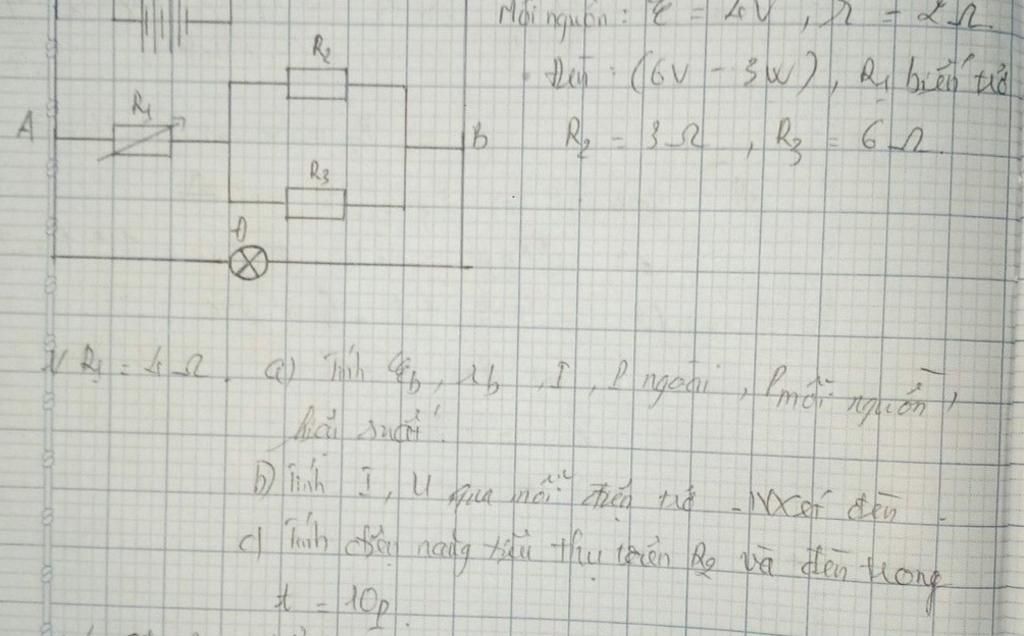 Mỗi nguồn : ℰ = 4V , r = 2 Ω.
Đèn : (6V - 3W), R₁ biến trở
R₂ = 3 Ω , R₃ = 6 Ω.
R₂
A R₁ B
R₃
Đ
1/ R₁ = 4 Ω. a) Tính ℰb, rb, I, P ngoài, P mỗi nguồn,
hiệu suất.
b) Tính I, U qua mỗi điện trở - NX đèn.
c) Tính điện năng tiêu thụ trên R₂ và đèn trong
t = 10p.